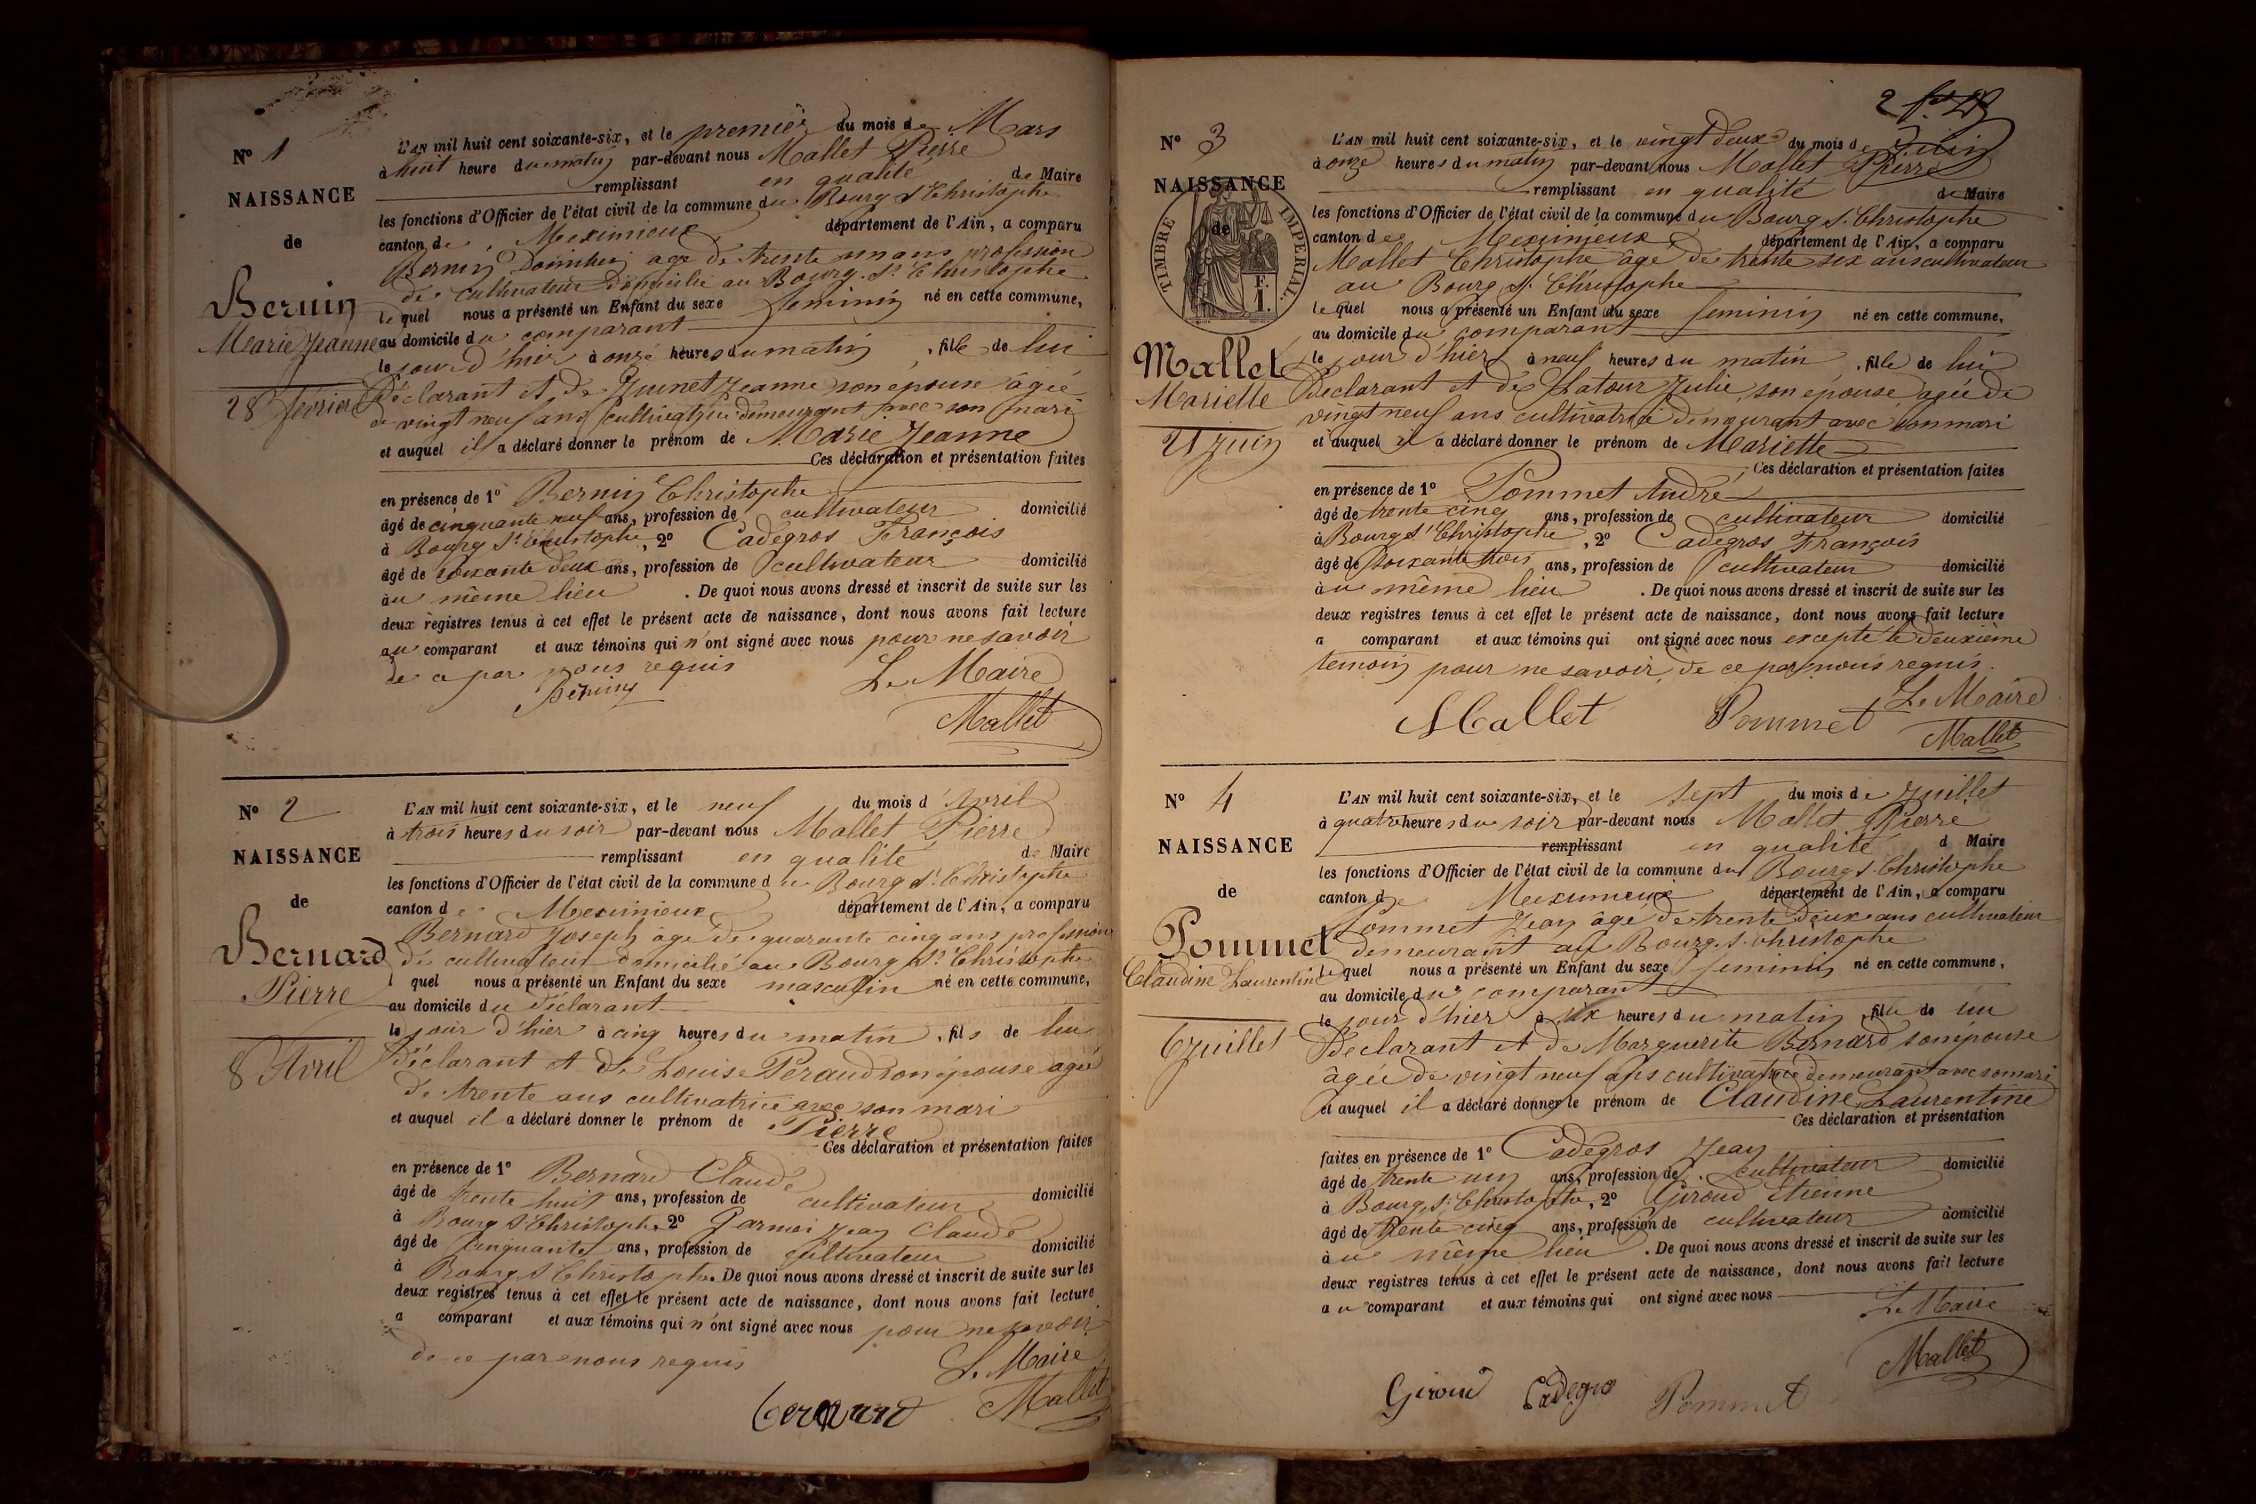 N° 1
NAISSANCE
de
Bernin
Marie Jeanne
28 février
L'AN mil huit cent soixante-six, et le premier du mois de Mars
à huit heure du matin par-devant nous Mallet Pierre
remplissant en qualité de Maire
les fonctions d'Officier de l'état civil de la commune du Bourg St Christophe
canton de Meximieux département de l'Ain, a comparu
Bernin agé de trente un ans profession
de cultivateur domicilié au Bourg St Christophe
lequel nous a présenté un Enfant du sexe feminin né en cette commune,
au domicile du comparant
le jour d'hier à onze heures du matin, fille de lui
Déclarant et de Juinet Jeanne son épouse âgée
de vingt neuf ans cultivatrice demeurant avec son mari
et auquel il a déclaré donner le prénom de Marie Jeanne
Ces déclaration et présentation faites
en présence de 1° Bernin Christophe
âgé de cinquante neuf ans, profession de cultivateur domicilié
à Bourg St Christophe, 2° Cadegros François
âgé de soixante deux ans, profession de cultivateur domicilié
au même lieu. De quoi nous avons dressé et inscrit de suite sur les
deux registres tenus à cet effet le présent acte de naissance, dont nous avons fait lecture
au comparant et aux témoins qui n'ont signé avec nous pour ne savoir
de ce par nous requis
Bernin Le Maire
Mallet
N° 2
NAISSANCE
de
Bernard
Pierre
8 Avril
L'AN mil huit cent soixante-six, et le neuf du mois d'Avril
à trois heures du soir par-devant nous Mallet Pierre
remplissant en qualité de Maire
les fonctions d'Officier de l'état civil de la commune du Bourg St Christophe
canton de Meximieux département de l'Ain, a comparu
Bernard Joseph âgé de quarante cinq ans profession
de cultivateur domicilié au Bourg St Christophe
lequel nous a présenté un Enfant du sexe masculin né en cette commune,
au domicile du déclarant
le jour d'hier à cinq heures du matin, fils de lui
Déclarant et de Louise Péraud son épouse agée
de trente ans cultivatrice avec son mari
et auquel il a déclaré donner le prénom de Pierre
Ces déclaration et présentation faites
en présence de 1° Bernard Claude
âgé de trente huit ans, profession de cultivateur domicilié
à Bourg St Christophe 2° Jean Claude
âgé de cinquante ans, profession de cultivateur domicilié
à Bourg St Christophe. De quoi nous avons dressé et inscrit de suite sur les
deux registres tenus à cet effet le présent acte de naissance, dont nous avons fait lecture
a comparant et aux témoins qui n'ont signé avec nous pour ne savoir
de ce par nous requis
Le Maire
Bernard Mallet
2
N° 3
NAISSANCE
de
TIMBRE IMPERIAL
Mallet
Mariette
21 Juin
L'AN mil huit cent soixante-six, et le vingt deux du mois de Juin
à onze heures du matin par-devant nous Mallet Pierre
remplissant en qualité de Maire
les fonctions d'Officier de l'état civil de la commune du Bourg St Christophe
canton de Meximieux département de l'Ain, a comparu
Mallet Christophe âgé de trente six ans cultivateur
au Bourg St Christophe
lequel nous a présenté un Enfant du sexe feminin né en cette commune,
au domicile du comparant
le jour d'hier à neuf heures du matin, fille de lui
Déclarant et de Latour Julie son épouse agée de
vingt neuf ans cultivatrice demeurant avec son mari
et auquel il a déclaré donner le prénom de Mariette
Ces déclaration et présentation faites
en présence de 1° Pommet André
âgé de trente cinq ans, profession de cultivateur domicilié
à Bourg St Christophe, 2° Cadegros François
âgé de soixante trois ans, profession de cultivateur domicilié
au même lieu. De quoi nous avons dressé et inscrit de suite sur les
deux registres tenus à cet effet le présent acte de naissance, dont nous avons fait lecture
a comparant et aux témoins qui ont signé avec nous excepté le deuxième
témoin pour ne savoir de ce par nous requis.
Mallet Pommet Le Maire
Mallet
N° 4
NAISSANCE
de
Pommet
Claudine Laurentine
6 juillet
L'AN mil huit cent soixante-six, et le sept du mois de juillet
à quatre heures du soir par-devant nous Mallet Pierre
remplissant en qualité d Maire
les fonctions d'Officier de l'état civil de la commune du Bourg St Christophe
canton de Meximieux département de l'Ain, a comparu
Pommet Jean âgé de trente deux ans cultivateur
demeurant au Bourg St Christophe
lequel nous a présenté un Enfant du sexe feminin né en cette commune,
au domicile du comparant
le jour d'hier à heures du matin, fille de lui
Déclarant et de Marguerite Bernard son épouse
âgée de vingt neuf ans cultivatrice demeurant avec so mari
et auquel il a déclaré donner le prénom de Claudine Laurentine
Ces déclaration et présentation
faites en présence de 1° Cadegros Jean
âgé de trente un ans, profession de cultivateur domicilié
à Bourg St Christophe, 2° Giroud Etienne
âgé de trente cinq ans, profession de cultivateur domicilié
au même lieu. De quoi nous avons dressé et inscrit de suite sur les
deux registres tenus à cet effet le présent acte de naissance, dont nous avons fait lecture
au comparant et aux témoins qui ont signé avec nous
Le Maire
Mallet
Giroud Cadegro Pommet